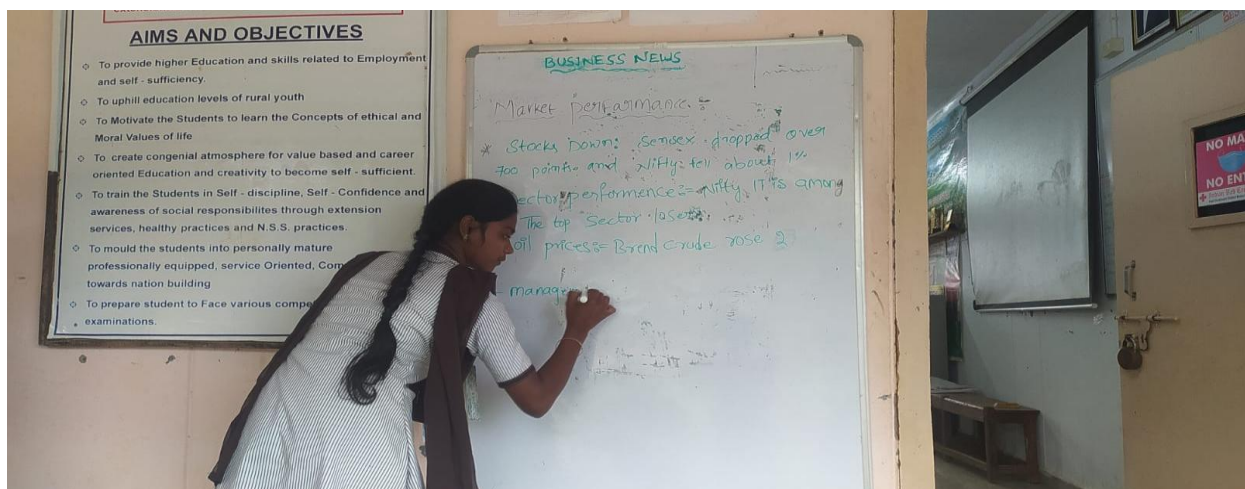 AIMS AND OBJECTIVES
To provide higher Education and skills related to Employment
and self - sufficiency.
To uphill education levels of rural youth
To Motivate the Students to learn the Concepts of ethical and
Moral Values of life
To create congenial atmosphere for value based and career
oriented Education and creativity to become self - sufficient.
To train the Students in Self - discipline, Self - Confidence and
awareness of social responsibilites through extension
services, healthy practices and N.S.S. practices.
To mould the students into personally mature
professionally equipped, service Oriented, Com
towards nation building
To prepare student to Face various compe
examinations.
BUSINESS NEWS
Market performance :-
* Stocks Down: Sensex dropped over
700 points and Nifty fell about 1%
ector performence:= Nifty IT is among
The top Sector losers
oil prices:= Brend Crude rose 2
manage
NO MA
NO EN